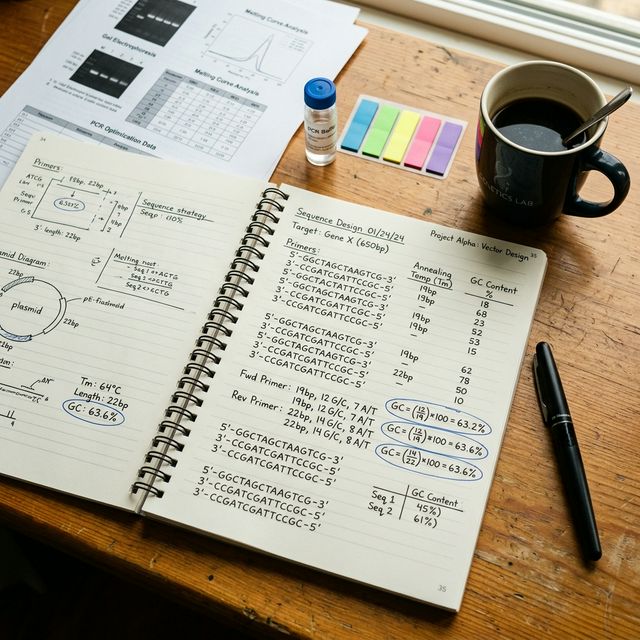 Gel Electrophoresis
Melting Curve Analysis
Melting Curve Analysis
PCR Optimization Data
34
Primers:
ATCG
18bp, 22bp
Primer
3' length: 22bp
Sequence strategy
Seqp: 110%
Melting
Seq 1 => ACTG
Seq 2 => CCTG
Diagram:
22bp
plasmid
22bp
Tm: 64°C
Length: 22bp
GC: 63.6%
Sequence Design 01/24/24
Project Alpha: Vector Design 35
Target: Gene X (650bp)
Primers: Annealing Temp (Tm) GC Content %
5'-GGCTAGCTAAGTCG-3' 19bp 18
3'-CCGATCGATTCCGC-5' 19bp 68
5'-GGCTACTATTCGCC-5' 19bp 23
5'-GGCTAGCTAAGTCG-3' 22bp 52
3'-CCGATCGATTCCGC-5' – 53
3'-CCGATCGATTCCGC-5' 15
5'-GGCTAGCTAAGTCG-3' 19bp
3'-CCGATCGATTCCGC-5' 19bp 62
5'-GGCTAGCTAAGTCG-3' 22bp 78
3'-CCGATCGATTCCGC-5' – 50
3'-CCGATCGATTCCGC-5' 10
Fwd Primer: 19bp, 12 G/C, 7 A/T GC = (12/19)*100 = 63.2%
19bp, 12 G/C, 7 A/T
Rev Primer: 22bp, 14 G/C, 8 A/T GC = (12/19)*100 = 63.6%
22bp, 14 G/C, 8 A/T GC = (14/22)*100 = 63.6%
5'-GGCTAGCTAAGTCG-3'
3'-CCGATCGATTCCGC-5'
3'-CCGATCGATTCCGC-5'
GC Content
Seq 1 45%)
Seq 2 61%)
5'-GGCTAGCTAAGTCG-3'
3'-CCGATCGATTCCGC-5'
3'-CCGATCGATTCCGC-5'
35
PCN
LAB